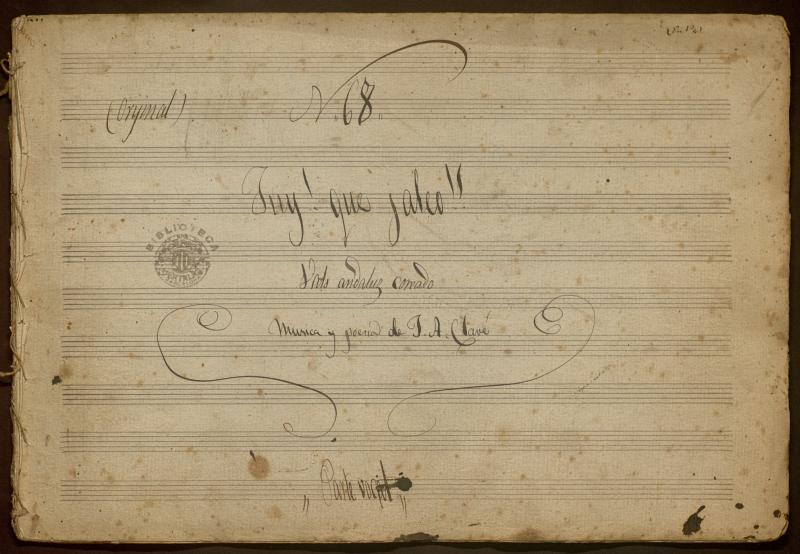 (Original)
N. 68.
Juy! que jaleo!!
Vals andaluz coreado
Musica y poesia de J. A. Clavé
BIBLIOTECA
„ Parte vocal „